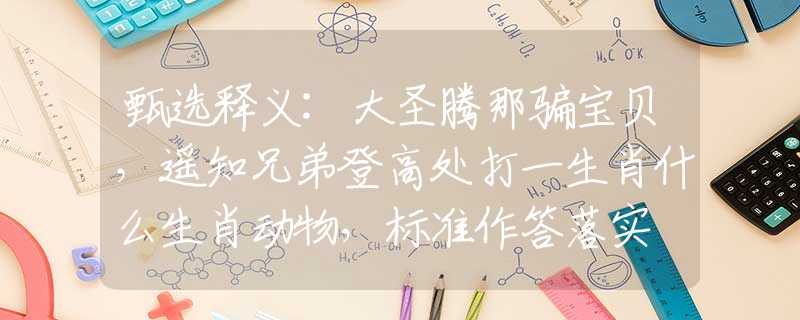 甄选释义：大圣腾那骗宝贝
，遥知兄弟登高处打一生肖什
么生肖动物，标准作答落实
H₃C OK
H₂SO₄